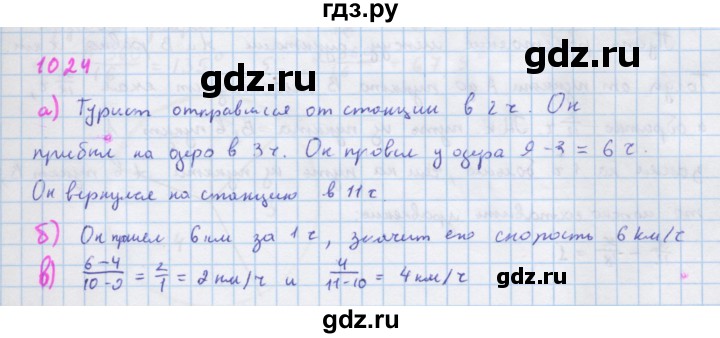 гдз.ру
1024
gdz.ru gdz.ru
а) Турист отправился от станции в 2 ч. Он
прибыл на озеро в 3 ч. Он провел у озера 9 - 3 = 6 ч.
Он вернулся на станцию в 11 ч
gdz.ru gdz.ru
б) Он прошел 6 км за 1 ч, значит его скорость 6 км/ч
в) \frac{6-4}{10-9} = \frac{2}{1} = 2 км/ч и \frac{4}{11-10} = 4 км/ч
gdz.ru gdz.ru